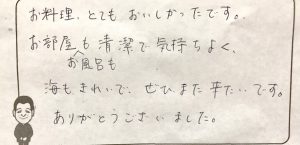 お料理、とても おいしかったです。
お部屋も清潔で気持ちよく、
お風呂も
海もきれいで、ぜひまた来たいです。
ありがとうございました。